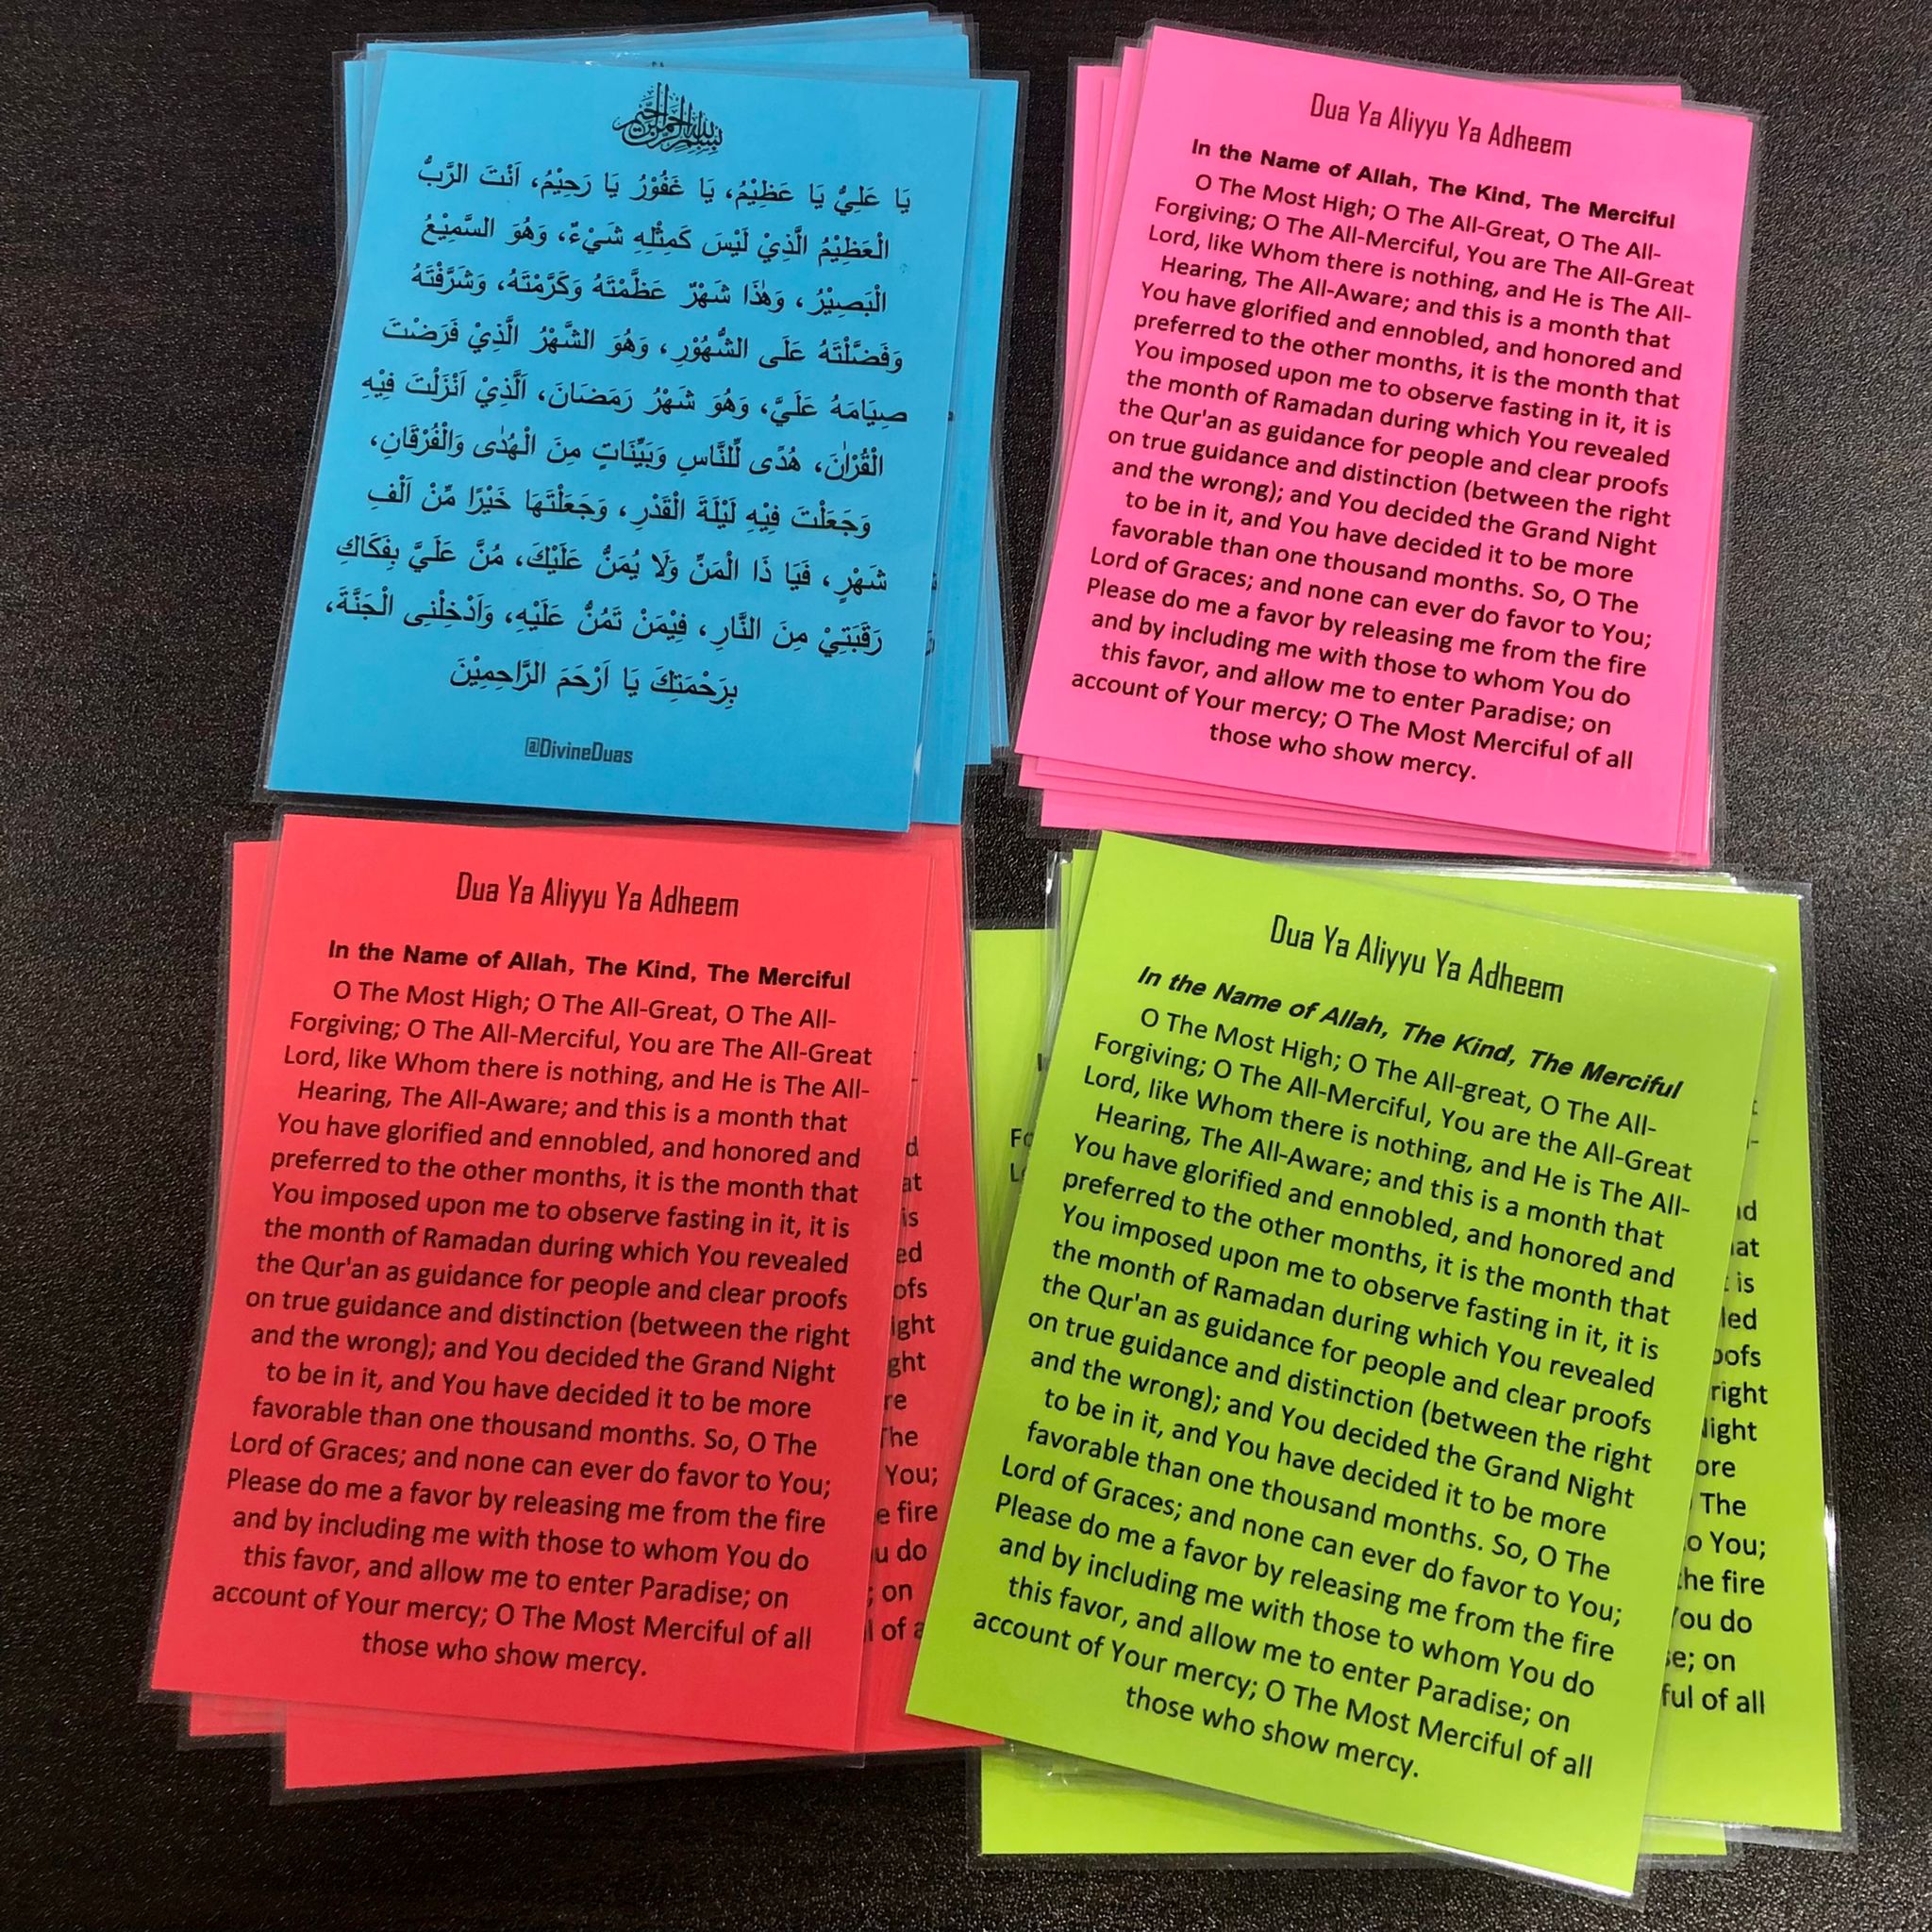 بسم الله الرحمن الرحيم
يَا عَلِيُّ يَا عَظِيْمُ، يَا غَفُوْرُ يَا رَحِيْمُ، اَنْتَ الرَّبُّ
الْعَظِيْمُ الَّذِيْ لَيْسَ كَمِثْلِهِ شَيْءٌ، وَهُوَ السَّمِيْعُ
الْبَصِيْرُ، وَهٰذَا شَهْرٌ عَظَّمْتَهُ وَكَرَّمْتَهُ، وَشَرَّفْتَهُ
وَفَضَّلْتَهُ عَلَى الشُّهُوْرِ، وَهُوَ الشَّهْرُ الَّذِيْ فَرَضْتَ
صِيَامَهُ عَلَيَّ، وَهُوَ شَهْرُ رَمَضَانَ، اَلَّذِيْ اَنْزَلْتَ فِيْهِ
الْقُرْاٰنَ، هُدًى لِّلنَّاسِ وَبَيِّنَاتٍ مِنَ الْهُدٰى وَالْفُرْقَانِ،
وَجَعَلْتَ فِيْهِ لَيْلَةَ الْقَدْرِ، وَجَعَلْتَهَا خَيْرًا مِّنْ اَلْفِ
شَهْرٍ، فَيَا ذَا الْمَنِّ وَلَا يُمَنُّ عَلَيْكَ، مُنَّ عَلَيَّ بِفَكَاكِ
رَقَبَتِيْ مِنَ النَّارِ، فِيْمَنْ تَمُنُّ عَلَيْهِ، وَاَدْخِلْنِى الْجَنَّةَ،
بِرَحْمَتِكَ يَا اَرْحَمَ الرَّاحِمِيْنَ
@DivineDuas
Dua Ya Aliyyu Ya Adheem
In the Name of Allah, The Kind, The Merciful
O The Most High; O The All-Great, O The All-
Forgiving; O The All-Merciful, You are The All-Great
Lord, like Whom there is nothing, and He is The All-
Hearing, The All-Aware; and this is a month that
You have glorified and ennobled, and honored and
preferred to the other months, it is the month that
You imposed upon me to observe fasting in it, it is
the month of Ramadan during which You revealed
the Qur'an as guidance for people and clear proofs
on true guidance and distinction (between the right
and the wrong); and You decided the Grand Night
to be in it, and You have decided it to be more
favorable than one thousand months. So, O The
Lord of Graces; and none can ever do favor to You;
Please do me a favor by releasing me from the fire
and by including me with those to whom You do
this favor, and allow me to enter Paradise; on
account of Your mercy; O The Most Merciful of all
those who show mercy.
Dua Ya Aliyyu Ya Adheem
In the Name of Allah, The Kind, The Merciful
O The Most High; O The All-Great, O The All-
Forgiving; O The All-Merciful, You are The All-Great
Lord, like Whom there is nothing, and He is The All-
Hearing, The All-Aware; and this is a month that
You have glorified and ennobled, and honored and
preferred to the other months, it is the month that
You imposed upon me to observe fasting in it, it is
the month of Ramadan during which You revealed
the Qur'an as guidance for people and clear proofs
on true guidance and distinction (between the right
and the wrong); and You decided the Grand Night
to be in it, and You have decided it to be more
favorable than one thousand months. So, O The
Lord of Graces; and none can ever do favor to You;
Please do me a favor by releasing me from the fire
and by including me with those to whom You do
this favor, and allow me to enter Paradise; on
account of Your mercy; O The Most Merciful of all
those who show mercy.
Dua Ya Aliyyu Ya Adheem
In the Name of Allah, The Kind, The Merciful
O The Most High; O The All-great, O The All-
Forgiving; O The All-Merciful, You are the All-Great
Lord, like Whom there is nothing, and He is The All-
Hearing, The All-Aware; and this is a month that
You have glorified and ennobled, and honored and
preferred to the other months, it is the month that
You imposed upon me to observe fasting in it, it is
the month of Ramadan during which You revealed
the Qur'an as guidance for people and clear proofs
on true guidance and distinction (between the right
and the wrong); and You decided the Grand Night
to be in it, and You have decided it to be more
favorable than one thousand months. So, O The
Lord of Graces; and none can ever do favor to You;
Please do me a favor by releasing me from the fire
and by including me with those to whom You do
this favor, and allow me to enter Paradise; on
account of Your mercy; O The Most Merciful of all
those who show mercy.